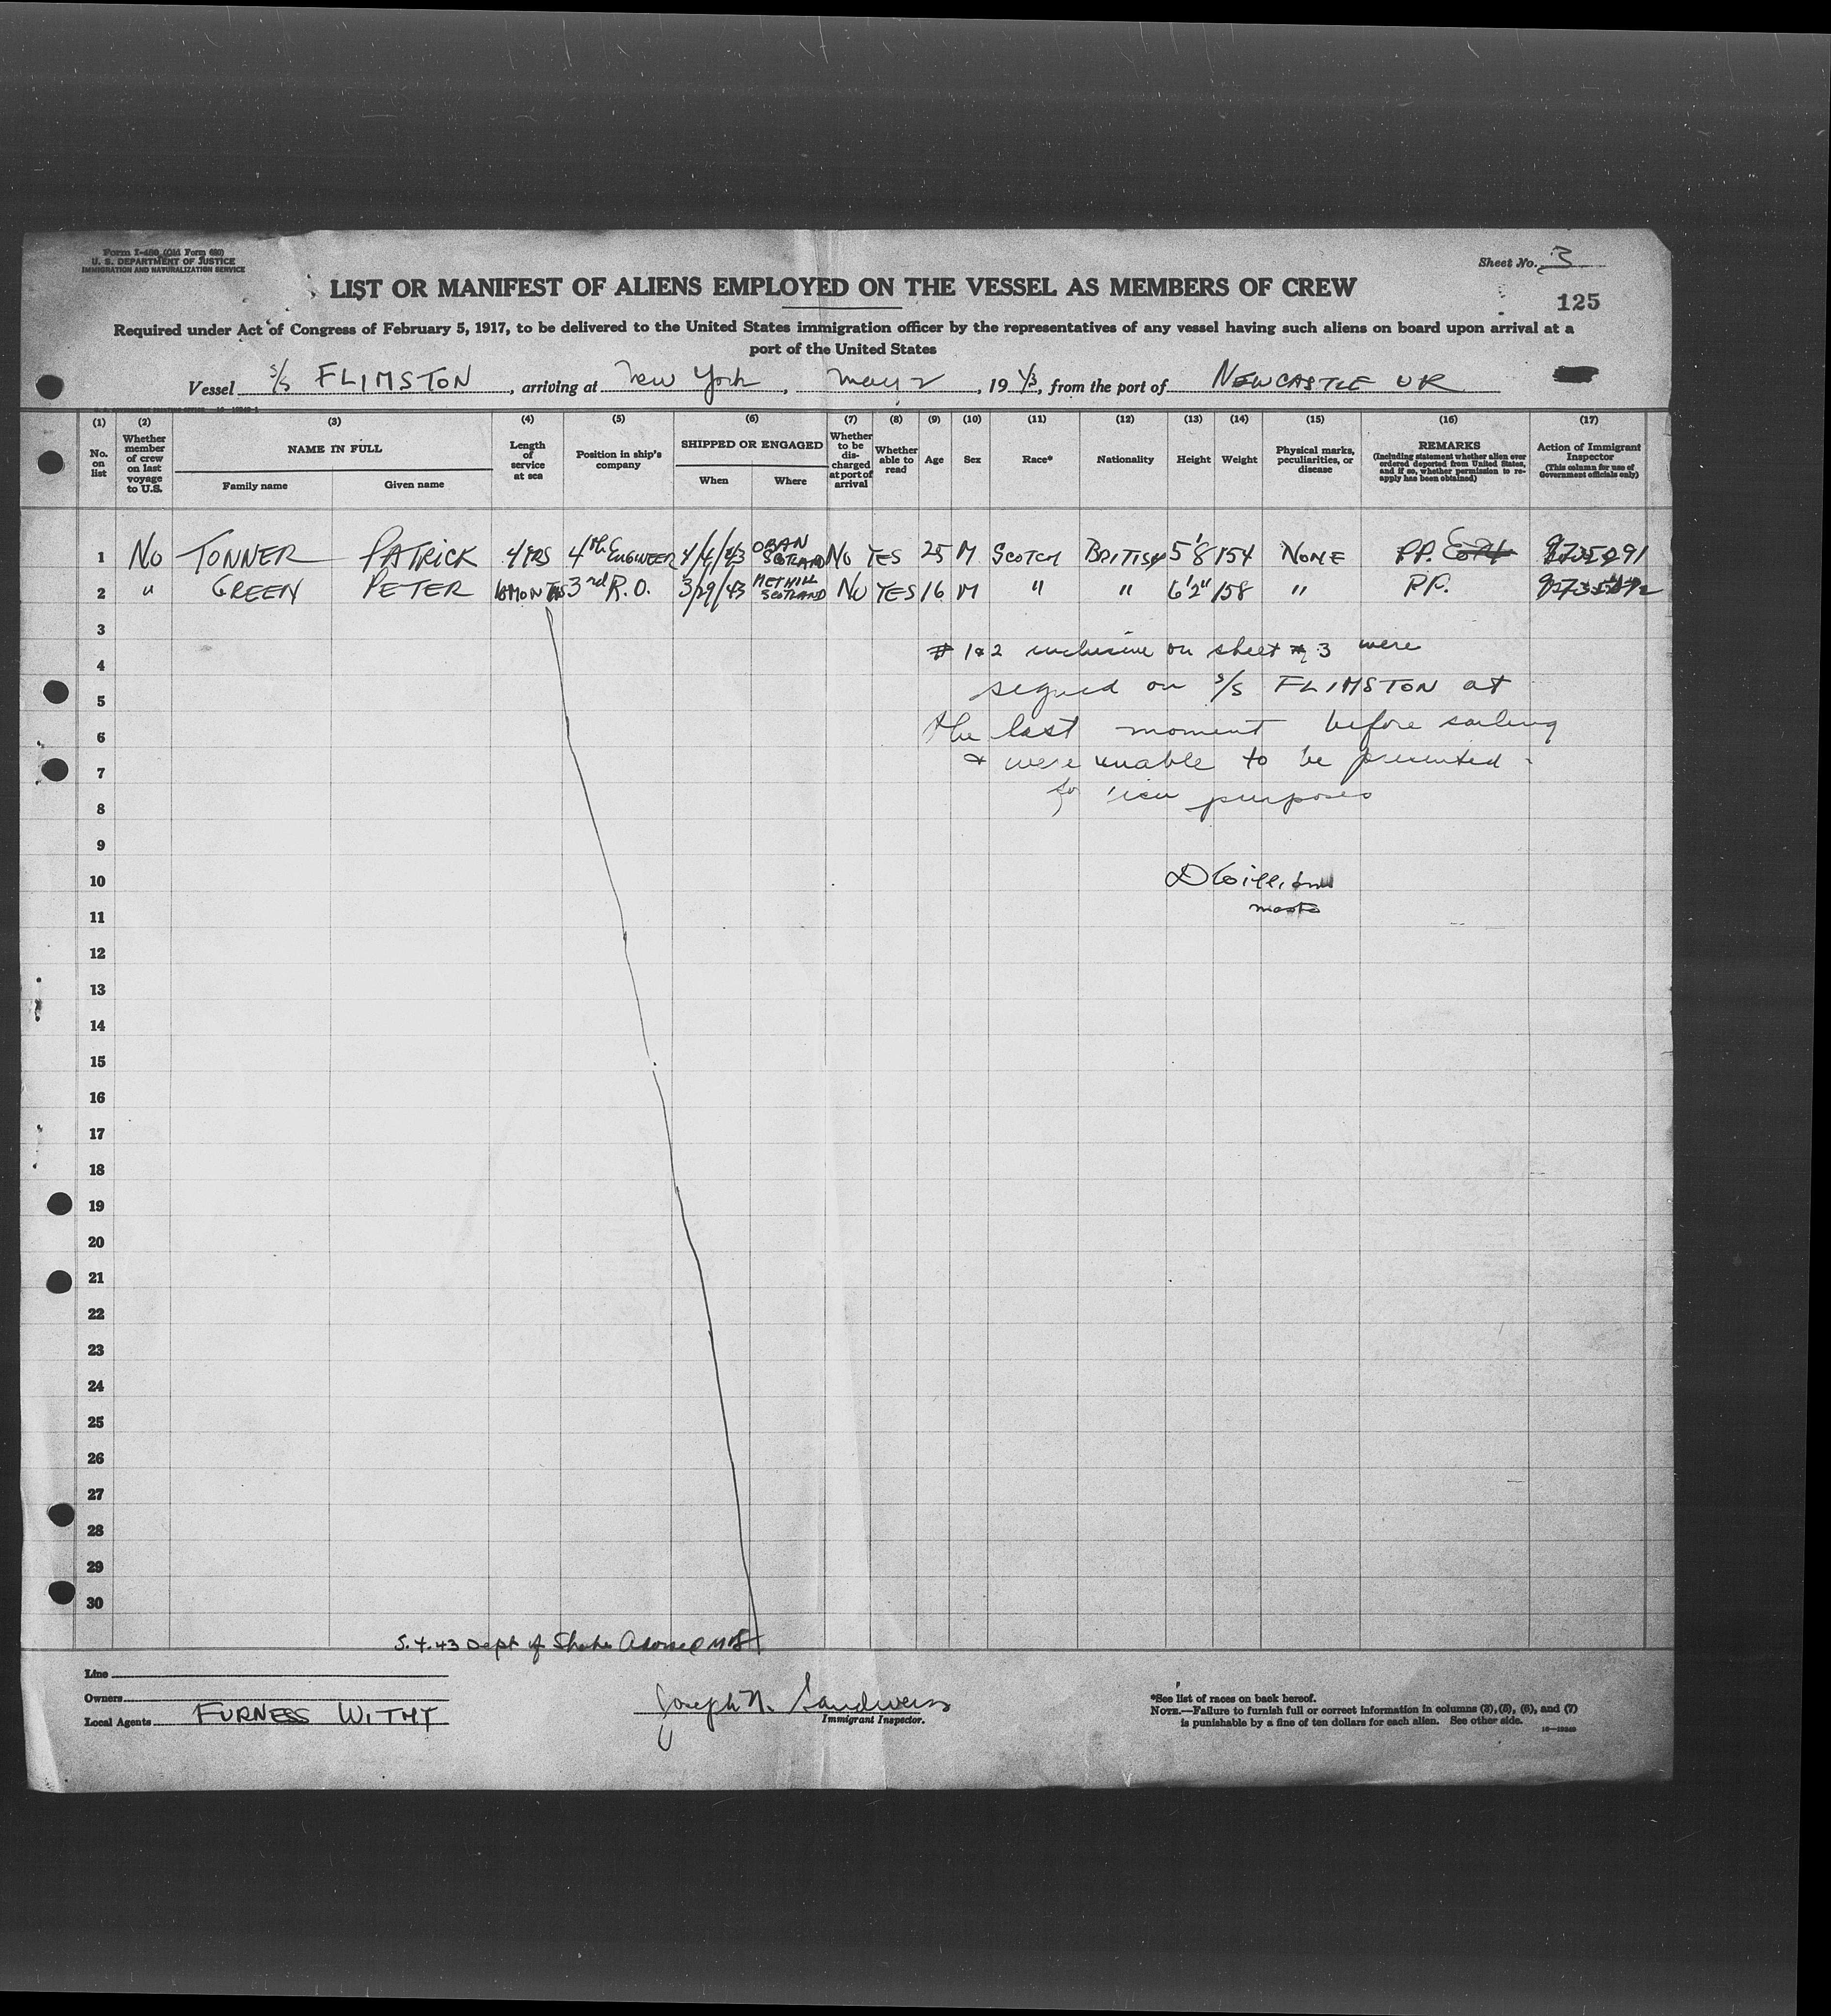 Form I-480 (Old Form 680)
U. S. DEPARTMENT OF JUSTICE
IMMIGRATION AND NATURALIZATION SERVICE
Sheet No. 3
LIST OR MANIFEST OF ALIENS EMPLOYED ON THE VESSEL AS MEMBERS OF CREW
125
Required under Act of Congress of February 5, 1917, to be delivered to the United States immigration officer by the representatives of any vessel having such aliens on board upon arrival at a
port of the United States
Vessel S/S FLIMSTON, arriving at New York, May 2, 1943, from the port of NEWCASTLE UK
(1) (2) (3) (4) (5) (6) (7) (8) (9) (10) (11) (12) (13) (14) (15) (16) (17)
No. on list
Whether member of crew on last voyage to U.S.
NAME IN FULL
Family name Given name
Length of service at sea
Position in ship's company
SHIPPED OR ENGAGED
When Where
Whether to be discharged at port of arrival
Whether able to read
Age
Sex
Race*
Nationality
Height
Weight
Physical marks, peculiarities, or disease
REMARKS
(Including statement whether alien ever ordered deported from United States, and if so, whether permission to reapply has been obtained)
Action of Immigrant Inspector
(This column for use of Government officials only)
1 No TONNER PATRICK 4 YRS 4th ENGINEER 4/4/43 OBAN SCOTLAND NO YES 25 M SCOTCH BRITISH 5'8 154 NONE P.P.
2 " GREEN PETER 6 MONTHS 3rd R.O. 3/29/43 METHIL SCOTLAND NO YES 16 M " " 6'2" 158 " P.P.
3
# 1 & 2 inclusive on sheet # 3 were
4
signed on S/S FLIMSTON at
5
the last moment before sailing
6
& were unable to be presented
7
for visa purposes
8
9
10
D Williams
master
11
12
13
14
15
16
17
18
19
20
21
22
23
24
25
26
27
28
29
30
5.4.43 Dept of State
Line
Owners
Local Agents FURNESS WITHY
Joseph N.
Immigrant Inspector.
*See list of races on back hereof.
NOTE.—Failure to furnish full or correct information in columns (3), (5), (6), and (7)
is punishable by a fine of ten dollars for each alien. See other side.